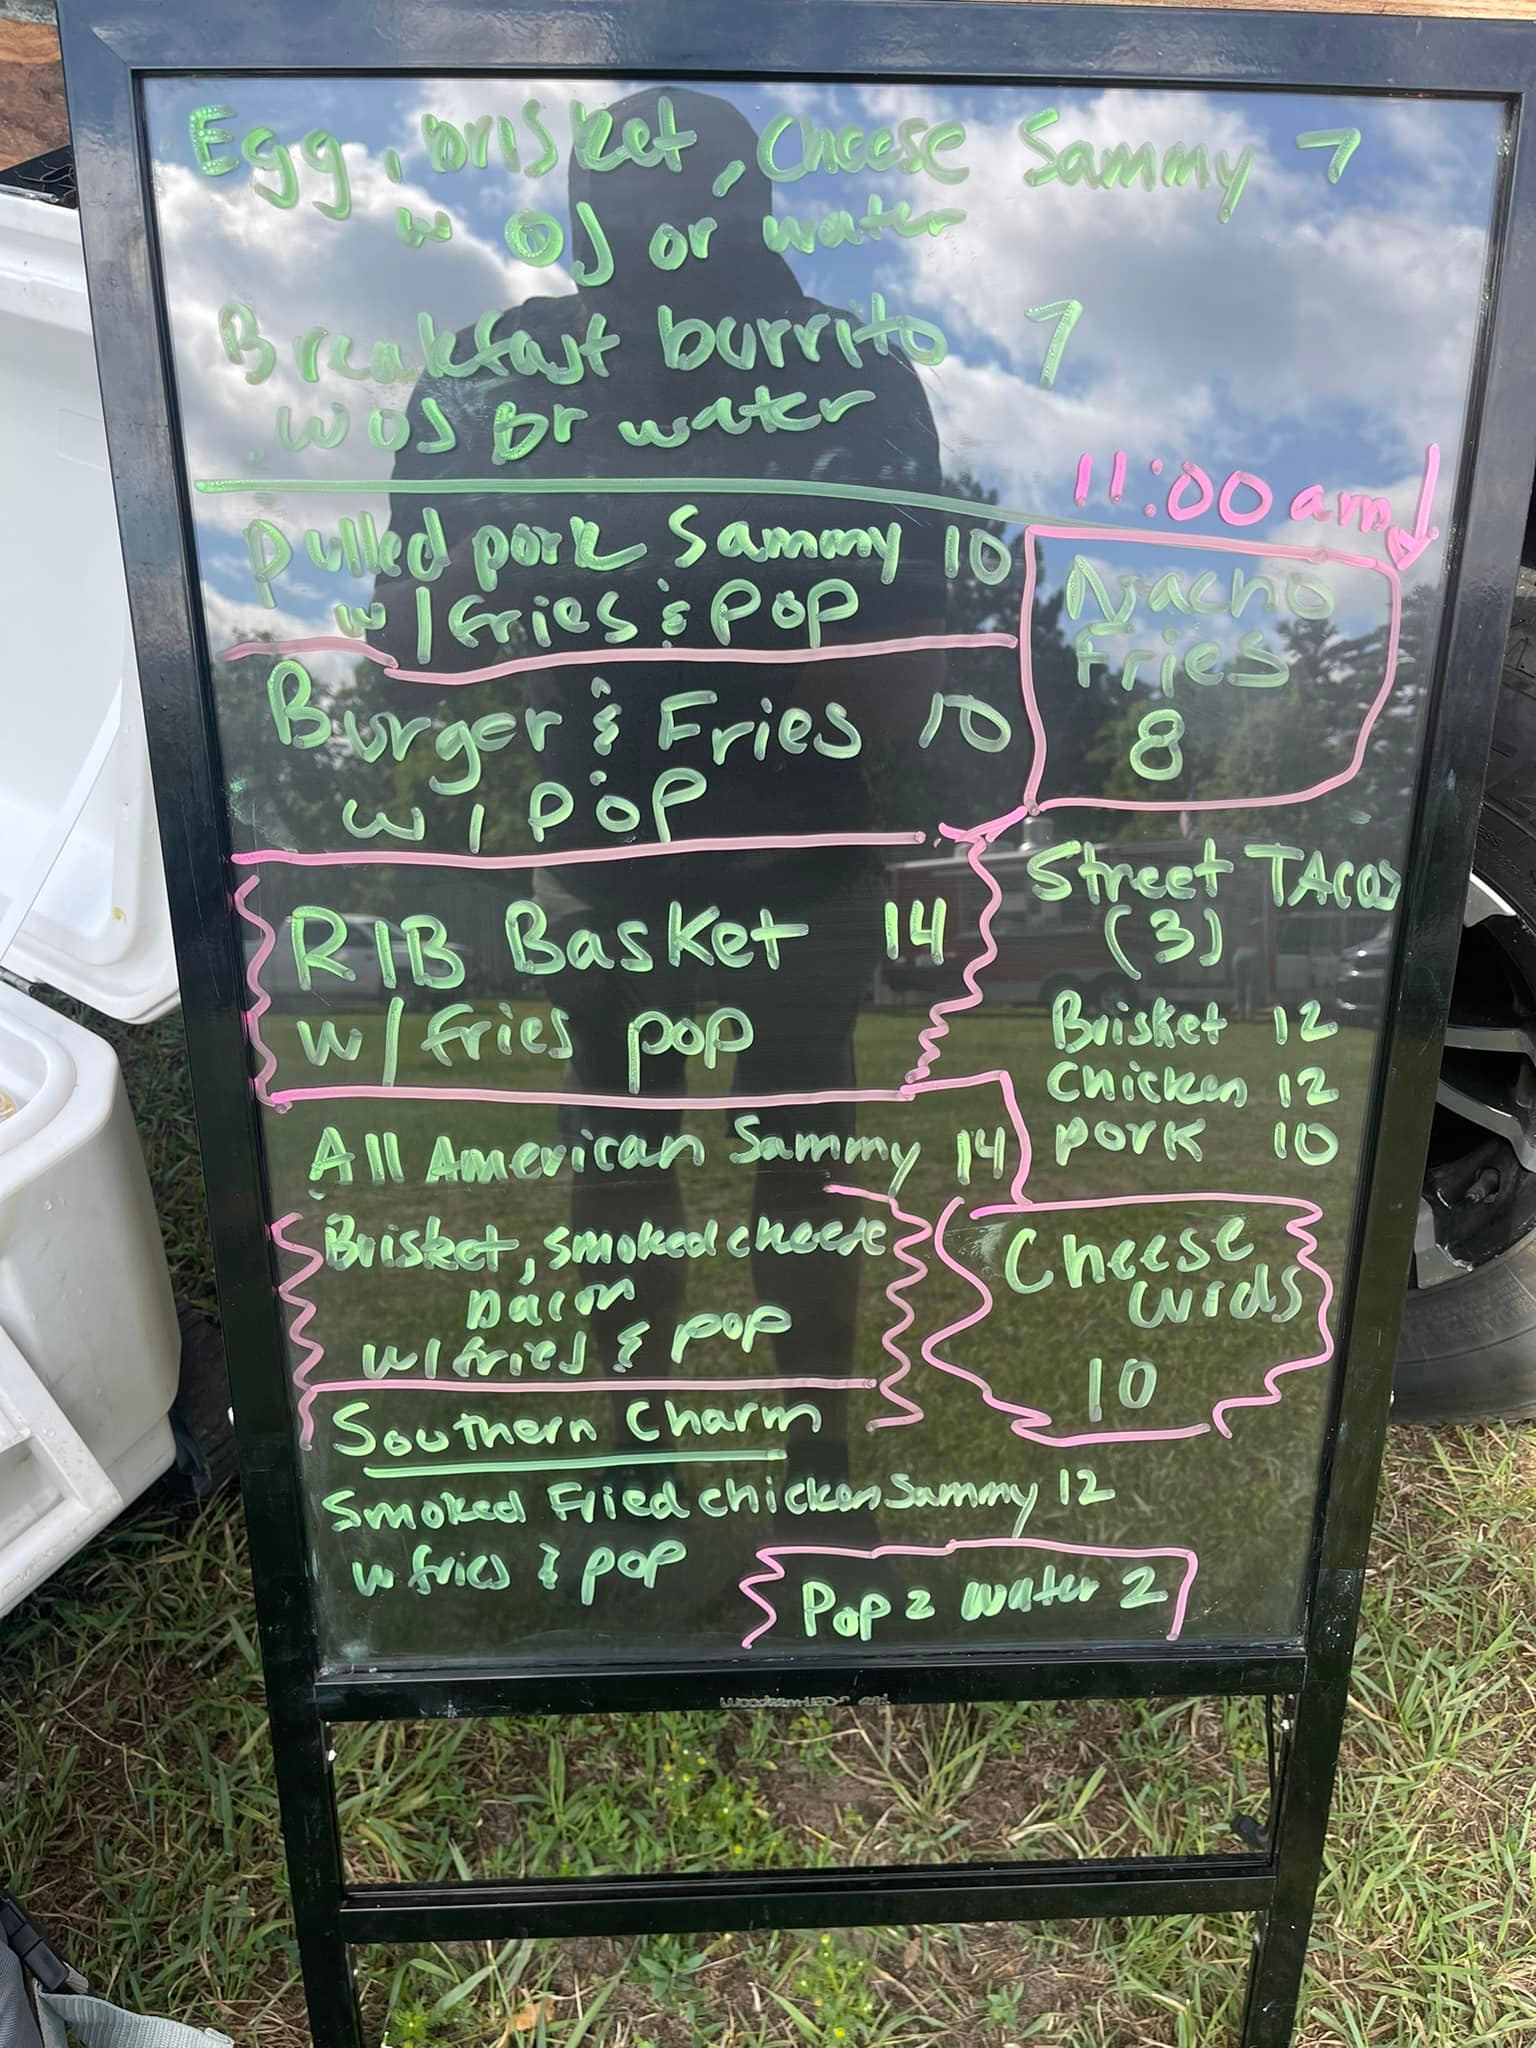 Egg, brisket, Cheese Sammy 7
w OJ or water
Breakfast burrito 7
w OJ or water
11:00 am
Pulled pork Sammy 10
w/ fries & pop
Nacho
Fries
8
Burger & Fries 10
w/ POP
Street TAcos
(3)
Brisket 12
Chicken 12
pork 10
RIB Basket 14
w/ fries pop
All American Sammy 14
Brisket, smoked cheese
Bacon
w/ fries & pop
Cheese
curds
10
Southern Charm
Smoked Fried chicken Sammy 12
w fries & pop
Pop 2 water 2